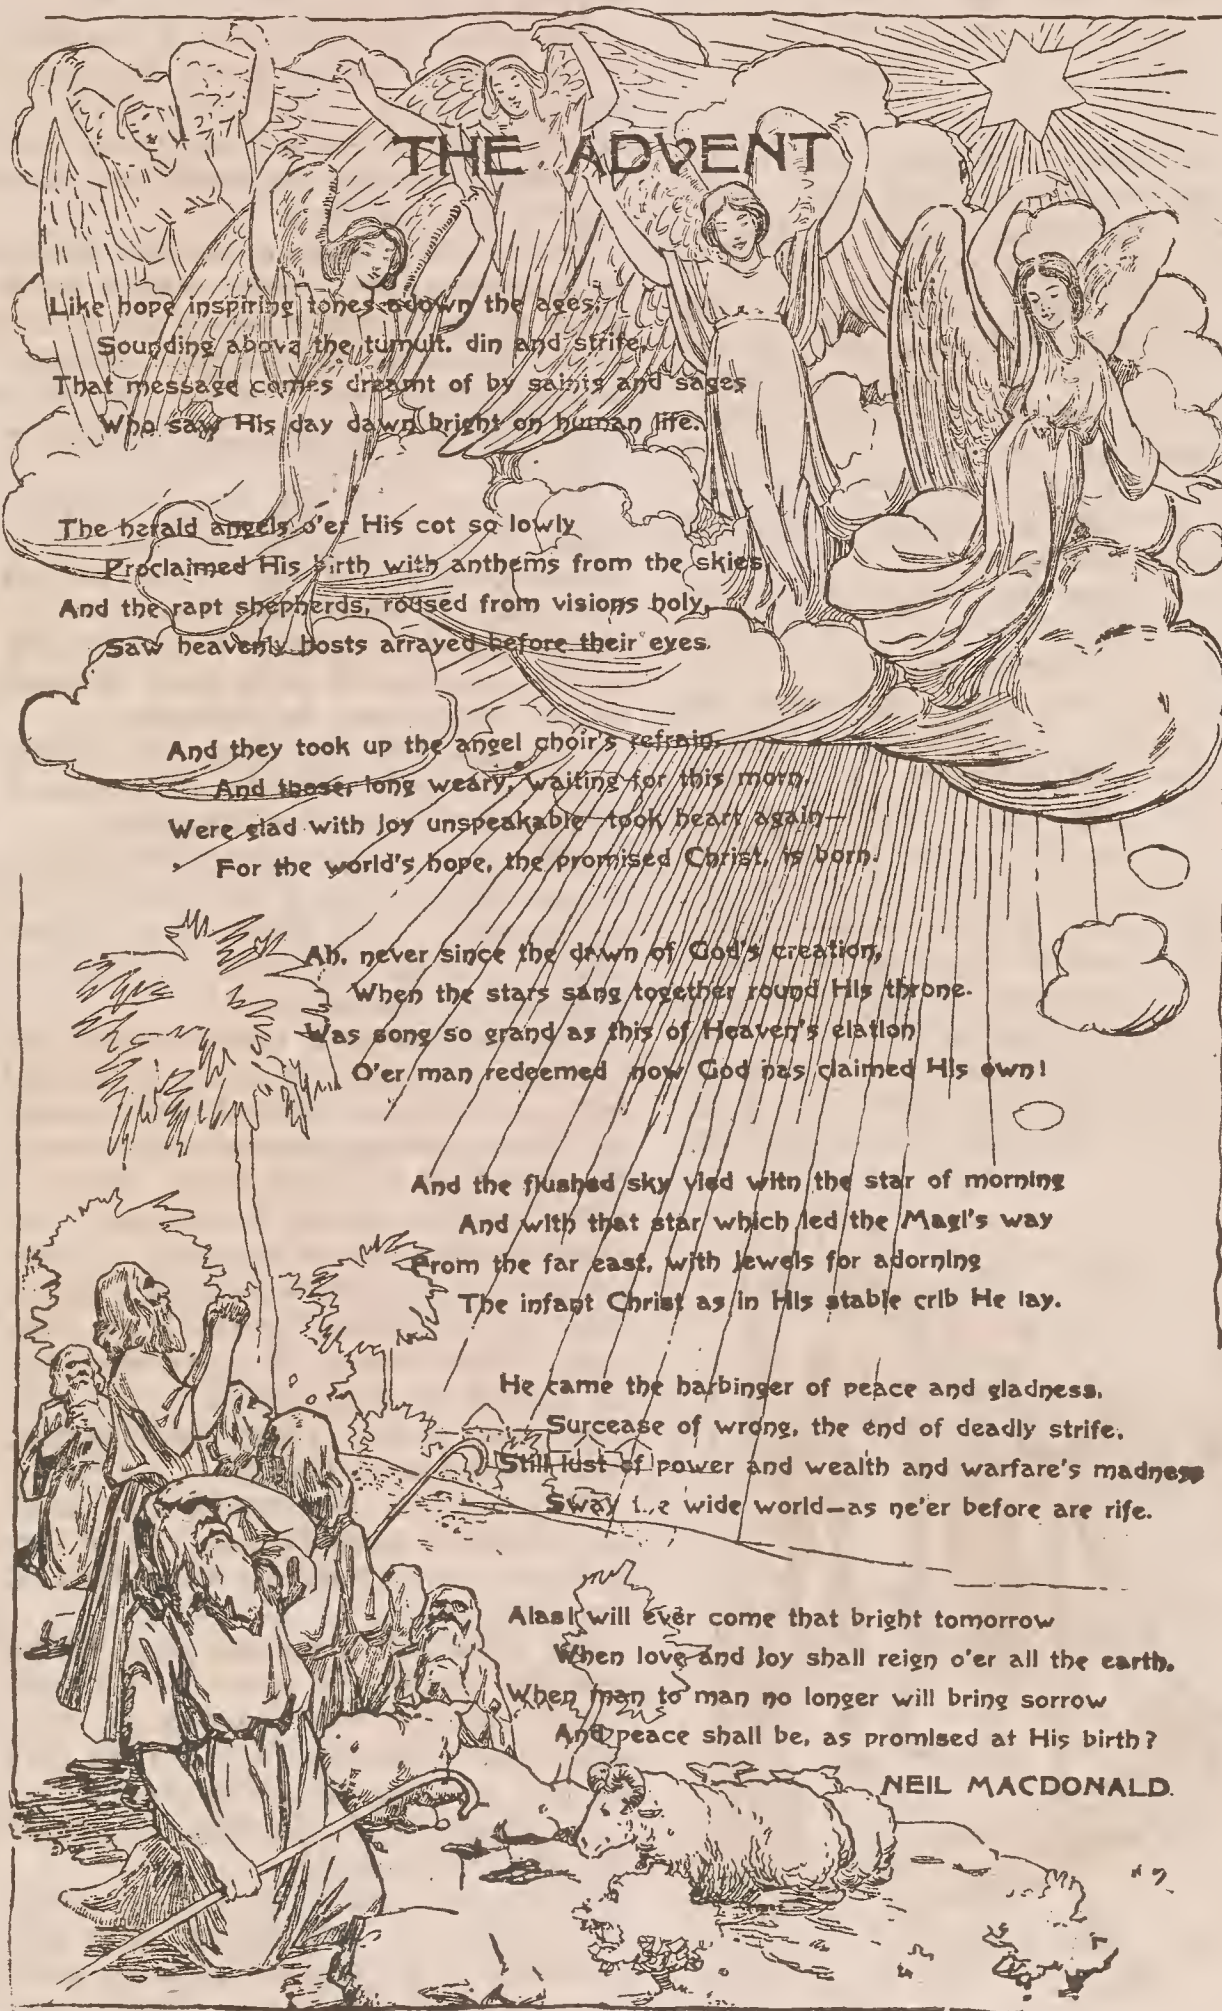 THE ADVENT
Like hope inspiring tones adown the ages,
Sounding above the tumult, din and strife,
That message comes dreamt of by saints and sages
Who saw His day dawn bright on human life.
The herald angels o'er His cot so lowly
Proclaimed His birth with anthems from the skies
And the rapt shepherds, roused from visions holy,
Saw heavenly hosts arrayed before their eyes.
And they took up the angel choir's refrain,
And those, long weary, waiting for this morn,
Were glad with joy unspeakable—took heart again—
For the world's hope, the promised Christ, is born.
Ah, never since the dawn of God's creation,
When the stars sang together round His throne.
Was song so grand as this of Heaven's elation
O'er man redeemed now God has claimed His own!
And the flushed sky vied with the star of morning
And with that star which led the Magi's way
From the far east, with jewels for adorning
The infant Christ as in His stable crib He lay.
He came the harbinger of peace and gladness,
Surcease of wrong, the end of deadly strife,
Still lust of power and wealth and warfare's madness
Sway the wide world—as ne'er before are rife.
Alas! will ever come that bright tomorrow
When love and joy shall reign o'er all the earth.
When man to man no longer will bring sorrow
And peace shall be, as promised at His birth?
NEIL MACDONALD.